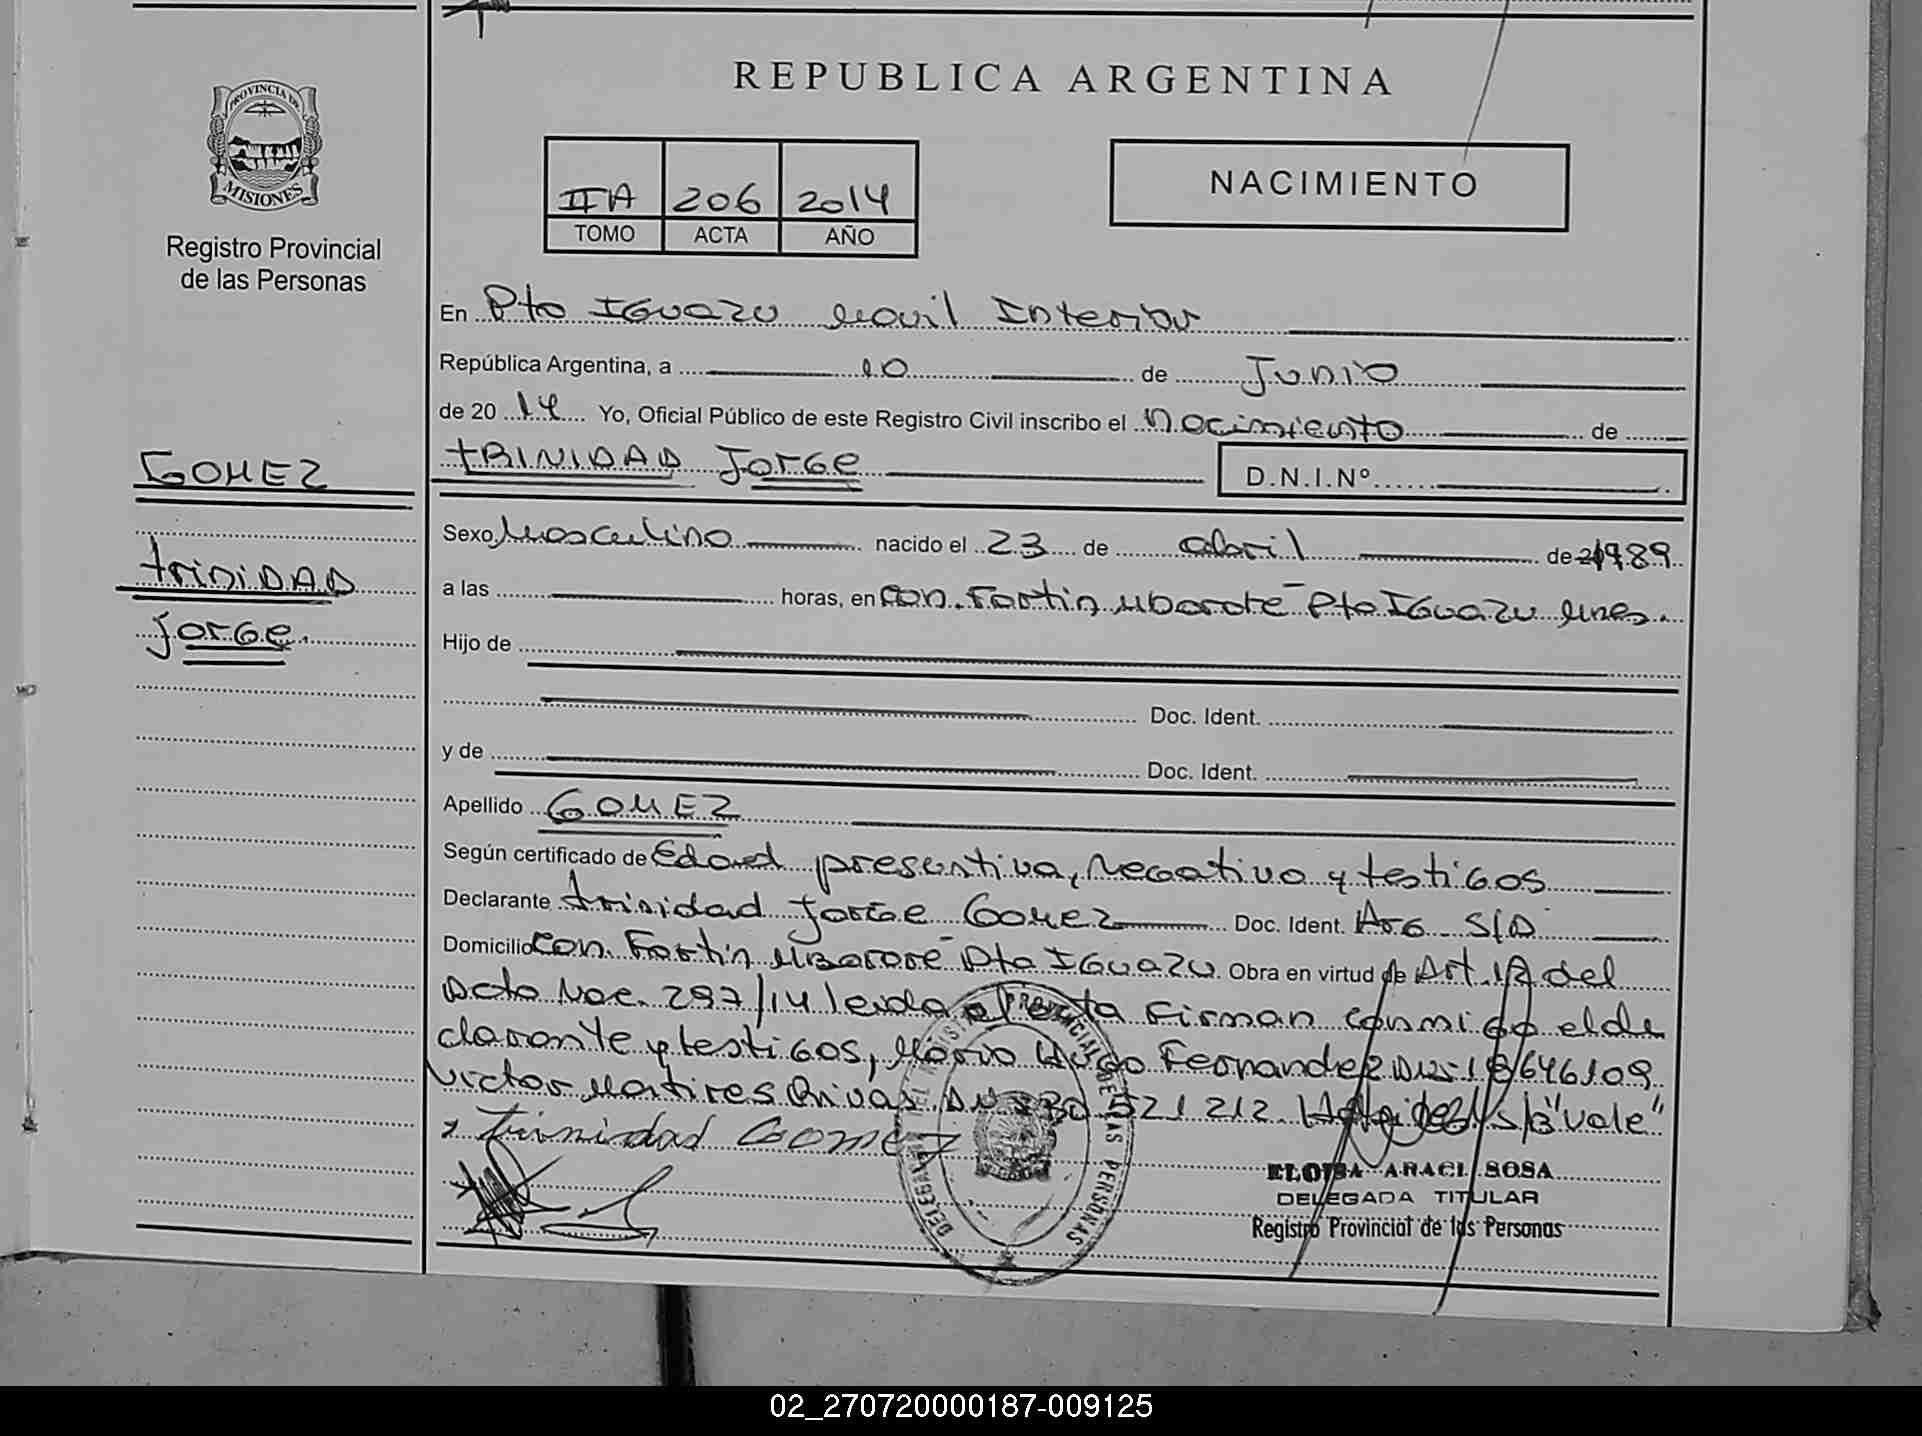 REPUBLICA ARGENTINA
PROVINCIA DE
MISIONES
Registro Provincial
de las Personas
IIA 206 2014
TOMO ACTA AÑO
NACIMIENTO
En Pto IGUAZU Movil Interior
República Argentina, a 10 de Junio
de 20 14 Yo, Oficial Público de este Registro Civil inscribo el Nacimiento de
TRINIDAD JorGe D.N.I.Nº
GOMEZ
triniDAD
jorGe.
Sexo Masculino nacido el 23 de abril de 1989
a las horas, en Con. Fortin Mbororé Pto IGuazu Mnes.
Hijo de
Doc. Ident.
y de Doc. Ident.
Apellido GOMEZ
Según certificado de Edad presuntiva, Negativo y testiGos
Declarante trinidad jorGe Gomez Doc. Ident. ArG S/D
Domicilio Con. Fortin Mbororé Pto IGuazu. Obra en virtud de Art. del
Dcto Nac. 297/14 leida el acta Firman conmiGo el de
clarante y testiGos, Mario HuGo Fernandez DNI 18646109
Victor Martires Rivas DNI 521212. s/ "vale"
Trinidad Gomez
ELOISA ARACI SOSA
DELEGADA TITULAR
Registro Provincial de las Personas
02_270720000187-009125